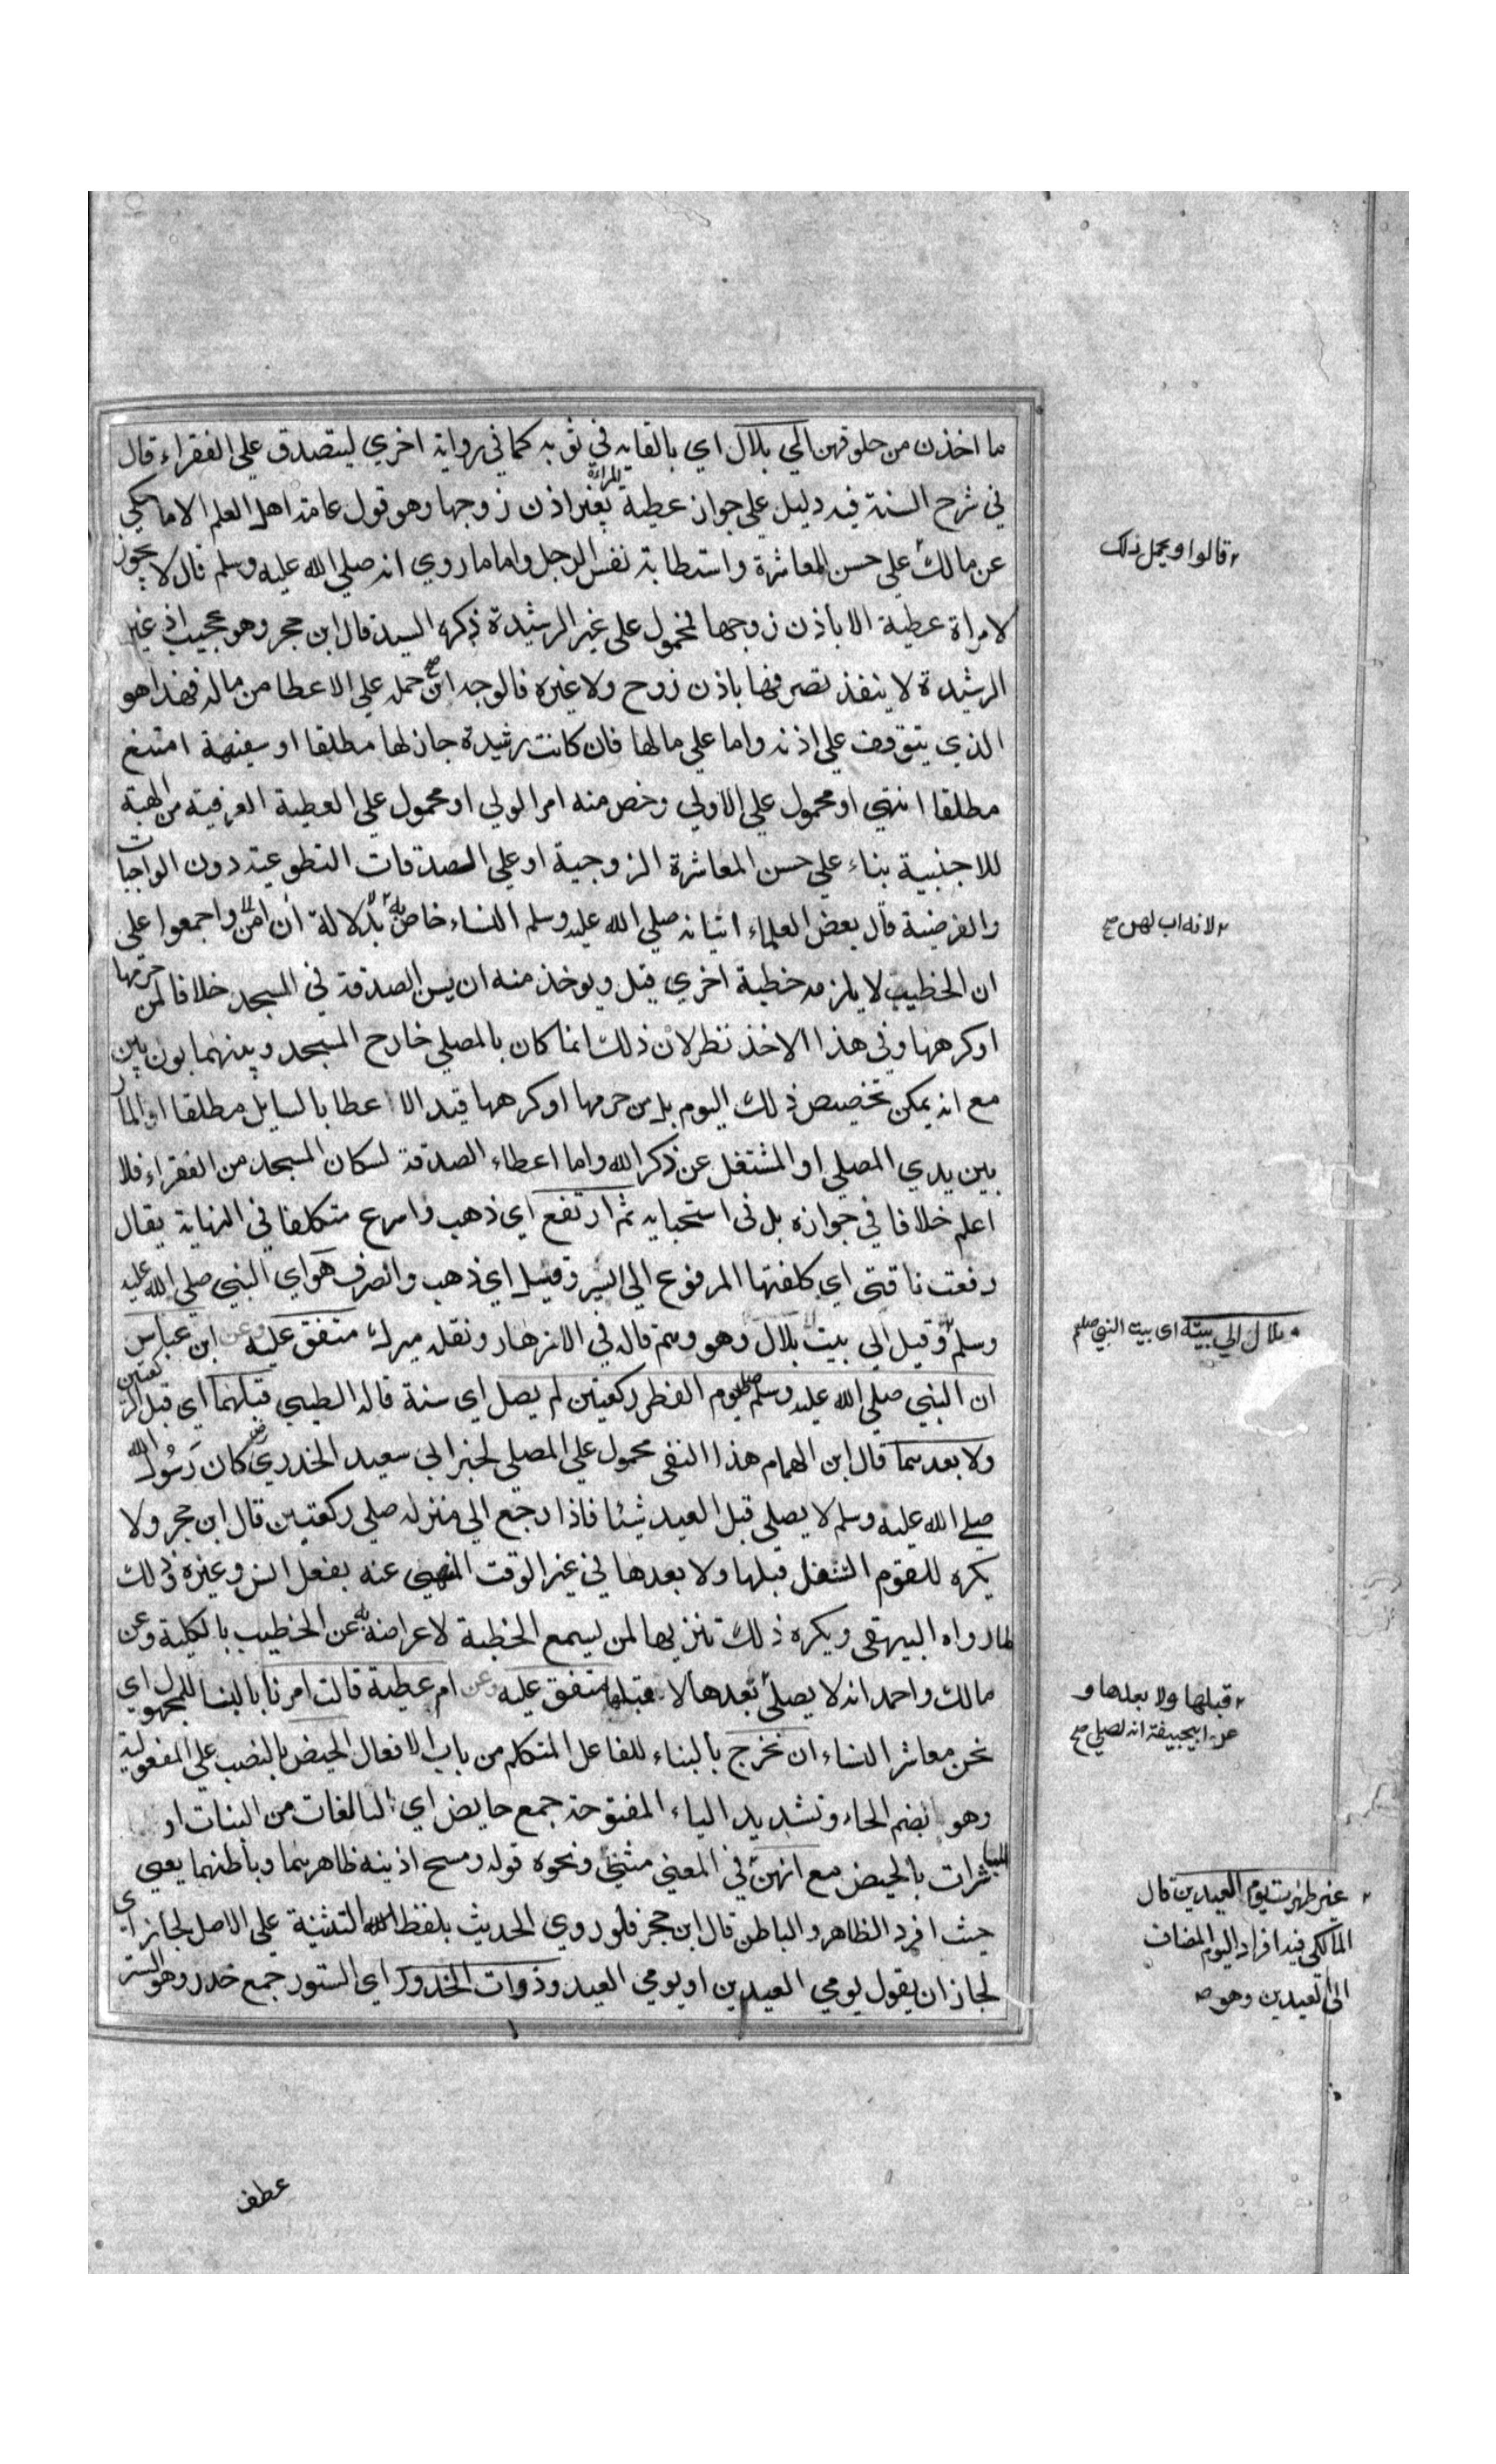 ما اخذن من حلوقهن الي بلال اي بالقايه في ثوبه كما في رواية اخري ليتصدق علي الفقراء قال
في شرح السنة فيه دليل علي جواز عطية المراة بغير اذن زوجها وهو قول عامة اهل العلم الا ما حكي
عن مالك علي حسن المعاشرة واستطابة نفس الرجل واما ما روي انه صلي الله عليه وسلم قال لا يجوز
لامراة عطية الا باذن زوجها فمحمول علي غير الرشيدة ذكره السيد قال ابن حجر وهو عجيب اذ غير
الرشيدة لا ينفذ تصرفها باذن زوج ولا غيره فالوجه ان صح حمله علي الاعطا من ماله فهذا هو
الذي يتوقف علي اذنه واما علي مالها فان كانت رشيدة جاز لها مطلقا او سفيهة امتنع
مطلقا انتهي او محمول علي الاولي وخص منه امر الولي او محمول علي العطية العرفية من الهبة
للاجنبية بناء علي حسن المعاشرة الزوجية او علي الصدقات التطوعية دون الواجبات
والفرضية قال بعض العلماء اتيانه صلي الله عليه وسلم النساء خاص به بدلالة ان امن واجمعوا علي
ان الخطيب لا يلزمه خطبة اخري قيل ويوخذ منه ان يسن الصدقة في المسجد خلافا لمن حرمها
او كرهها وفي هذا الاخذ نظر لان ذلك انما كان بالمصلي خارج المسجد وبينهما بون بين
مع انه يمكن تخصيص ذلك اليوم بل من حرمها او كرهها قيد الاعطا بالسايل مطلقا او المار
بين يدي المصلي او المشتغل عن ذكر الله واما اعطاء الصدقة لسكان المسجد من الفقراء فلا
اعلم خلافا في جوازه بل في استحبابه ثم ارتفع اي ذهب واسرع متكلفا في النهاية يقال
رفعت ناقتي اي كلفتها المرفوع الي السير وقيل اي ذهب وانصرف هو اي النبي صلي الله عليه
وسلم و وقيل الي بيت بلال وهو وهم قاله في الازهار ونقله ميرك متفق عليه وعن ابن عباس
ان النبي صلي الله عليه وسلم صلي يوم الفطر ركعتين لم يصل اي سنة قاله الطيبي قبلهما اي قبل الركعتين
ولا بعدهما قال ابن الهمام هذا النفي محمول علي المصلي لخبر ابي سعيد الخدري رض كان رسول الله
صلي الله عليه وسلم لا يصلي قبل العيد شيئا فاذا رجع الي منزله صلي ركعتين قال ابن حجر ولا
يكره للقوم التنفل قبلها ولا بعدها في غير الوقت المنهي عنه بفعل انس وغيره ذلك
لما رواه البيهقي ويكره ذلك تنزيها لمن يسمع الخطبة لاعراضه به عن الخطيب بالكلية وعن
مالك واحمد انه لا يصلي بعدها لا قبلها متفق عليه وعن ام عطية قالت امرنا بالبنا للمجهول اي
نحن معاشر النساء ان نخرج بالبناء للفاعل المتكلم من باب الافعال الحيض بالنصب علي المفعولية
وهو بضم الحاء وتشديد الياء المفتوحة جمع حايض اي البالغات من البنات او
المباشرات بالحيض مع انهن في المعني مثني ونحوه قوله ومسح اذنيه ظاهرهما وباطنهما يعني
حيث افرد الظاهر والباطن قال ابن حجر فلو روي الحديث بلفظ التثنية علي الاصل لجاز اي
لجاز ان يقول يومي العيدين او يومي العيد وذوات الخدور اي الستور جمع خدر وهو الستر
قالوا ويحمل ذلك
لانه اب لهن صح
بلال الي بيته اي بيت النبي صلعم
قبلها ولا بعدها و
عن ابيحنيفة انه لصلي صح
غير طهرت يوم العيدين قال
المالكي فيه افراد اليوم المضاف
الي العيدين وهو
عطف